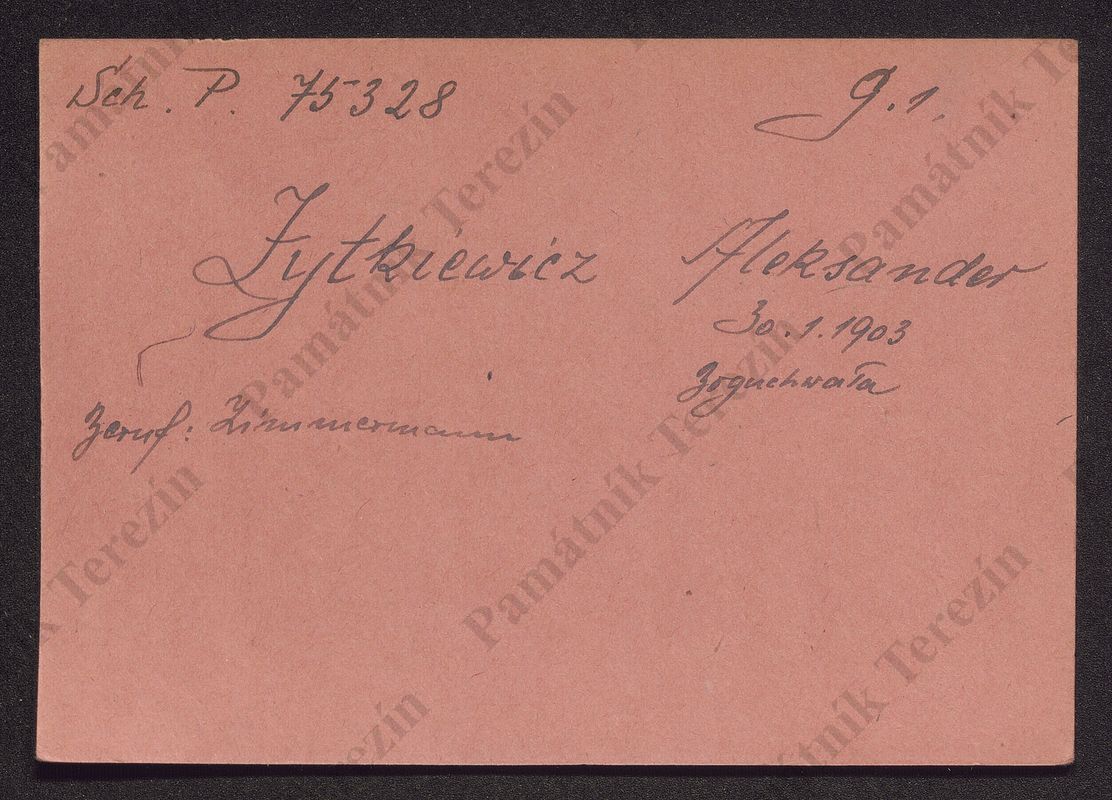 Sch. P. 75328 9.1.
Zytkiewicz Aleksander
30.1.1903
Boguchwała
Beruf: Zimmermann
Památník Terezín
Památník Terezín
Památník Terezín
Památník Terezín
Památník Terezín